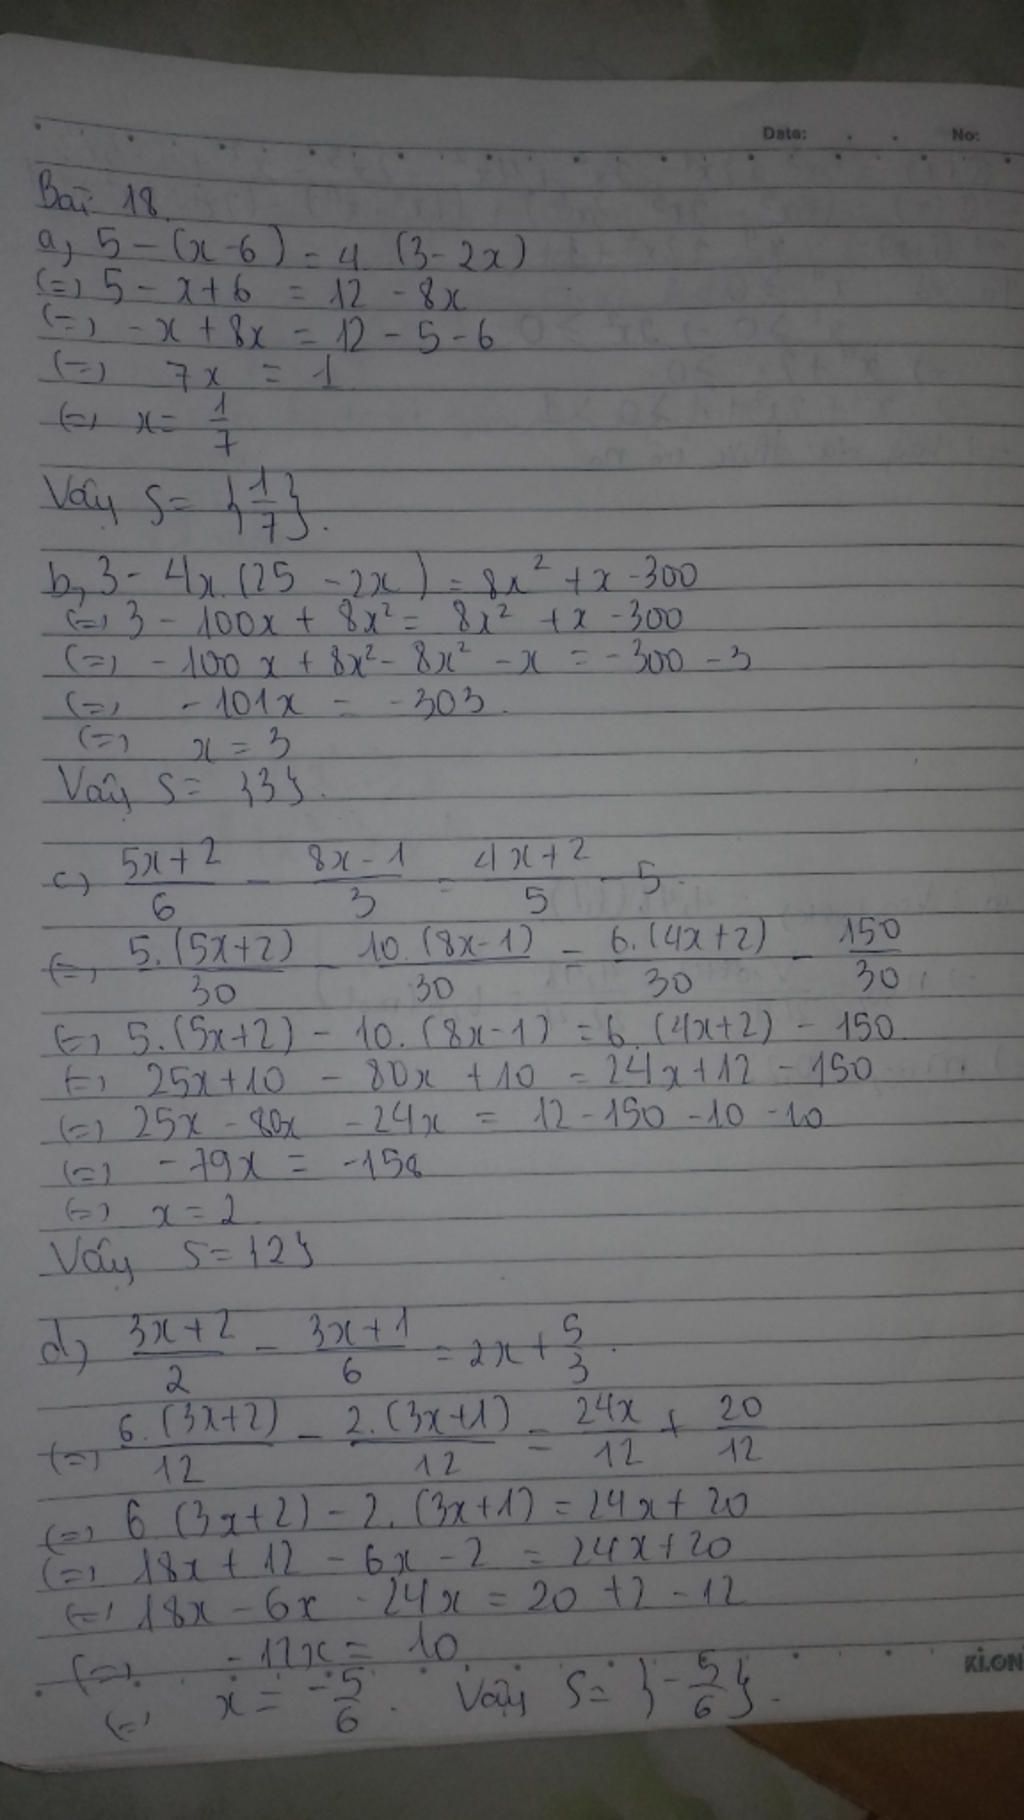 Date: . . No:
Bài 18
a, 5 - (x - 6) = 4 (3 - 2x)
(=) 5 - x + 6 = 12 - 8x
(=) - x + 8x = 12 - 5 - 6
(=) 7x = 1
(=) x = 1/7
Vậy S = {1/7}.
b, 3 - 4x.(25 - 2x) = 8x² + x - 300
(=) 3 - 100x + 8x² = 8x² + x - 300
(=) - 100x + 8x² - 8x² - x = - 300 - 3
(=) - 101x = - 303.
(=) x = 3
Vậy S = {3}.
c) (5x + 2)/6 - (8x - 1)/3 = (4x + 2)/5 - 5.
(=) 5.(5x+2)/30 - 10.(8x-1)/30 = 6.(4x+2)/30 - 150/30
(=) 5.(5x+2) - 10.(8x-1) = 6.(4x+2) - 150
(=) 25x + 10 - 80x + 10 = 24x + 12 - 150
(=) 25x - 80x - 24x = 12 - 150 - 10 - 10
(=) - 79x = - 158
(=) x = 2
Vậy S = {2}
d) (3x + 2)/2 - (3x + 1)/6 = 2x + 5/3.
(=) 6.(3x+2)/12 - 2.(3x+1)/12 = 24x/12 + 20/12
(=) 6.(3x+2) - 2.(3x+1) = 24x + 20
(=) 18x + 12 - 6x - 2 = 24x + 20
(=) 18x - 6x - 24x = 20 + 2 - 12
(=) - 12x = 10
KLON
(=) x = -5/6. Vậy S = {-5/6}.